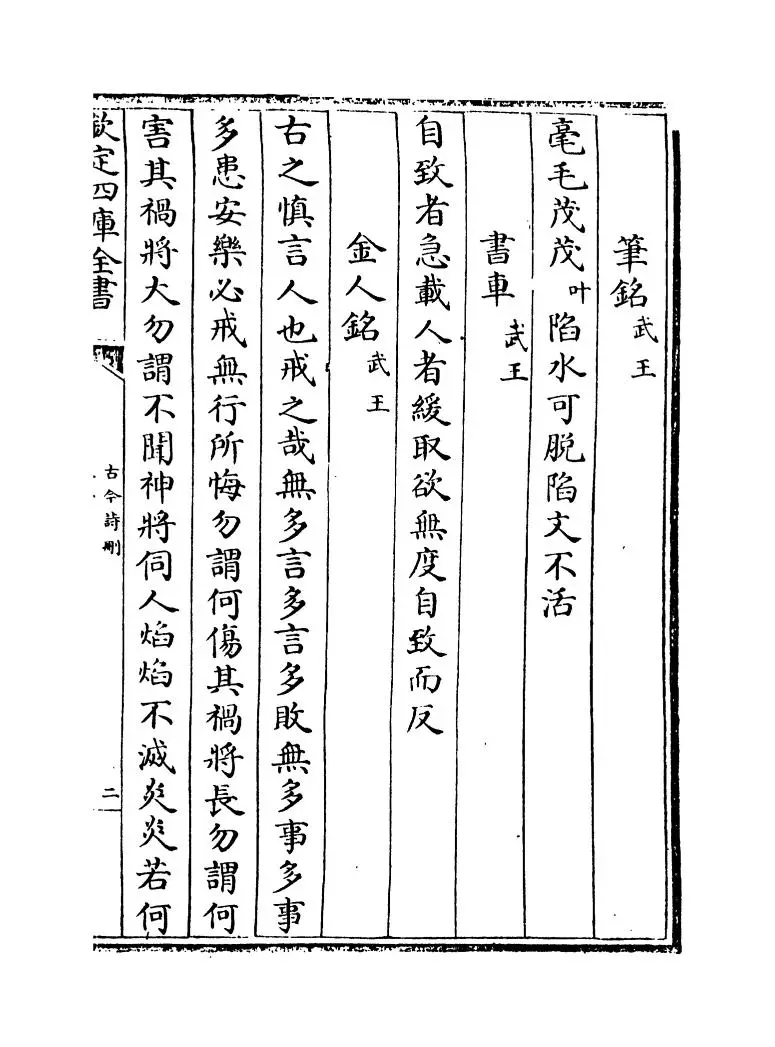 筆銘武王
毫毛茂茂叶陷水可脱陷文不活
書車武王
自致者急載人者緩取欲無度自致而反
金人銘武王
古之慎言人也戒之哉無多言多言多敗無多事多事
多患安樂必戒無行所悔勿謂何傷其禍將長勿謂何
害其禍將大勿謂不聞神將伺人焰焰不滅炎炎若何
欽定四庫全書
古今詩刪
二